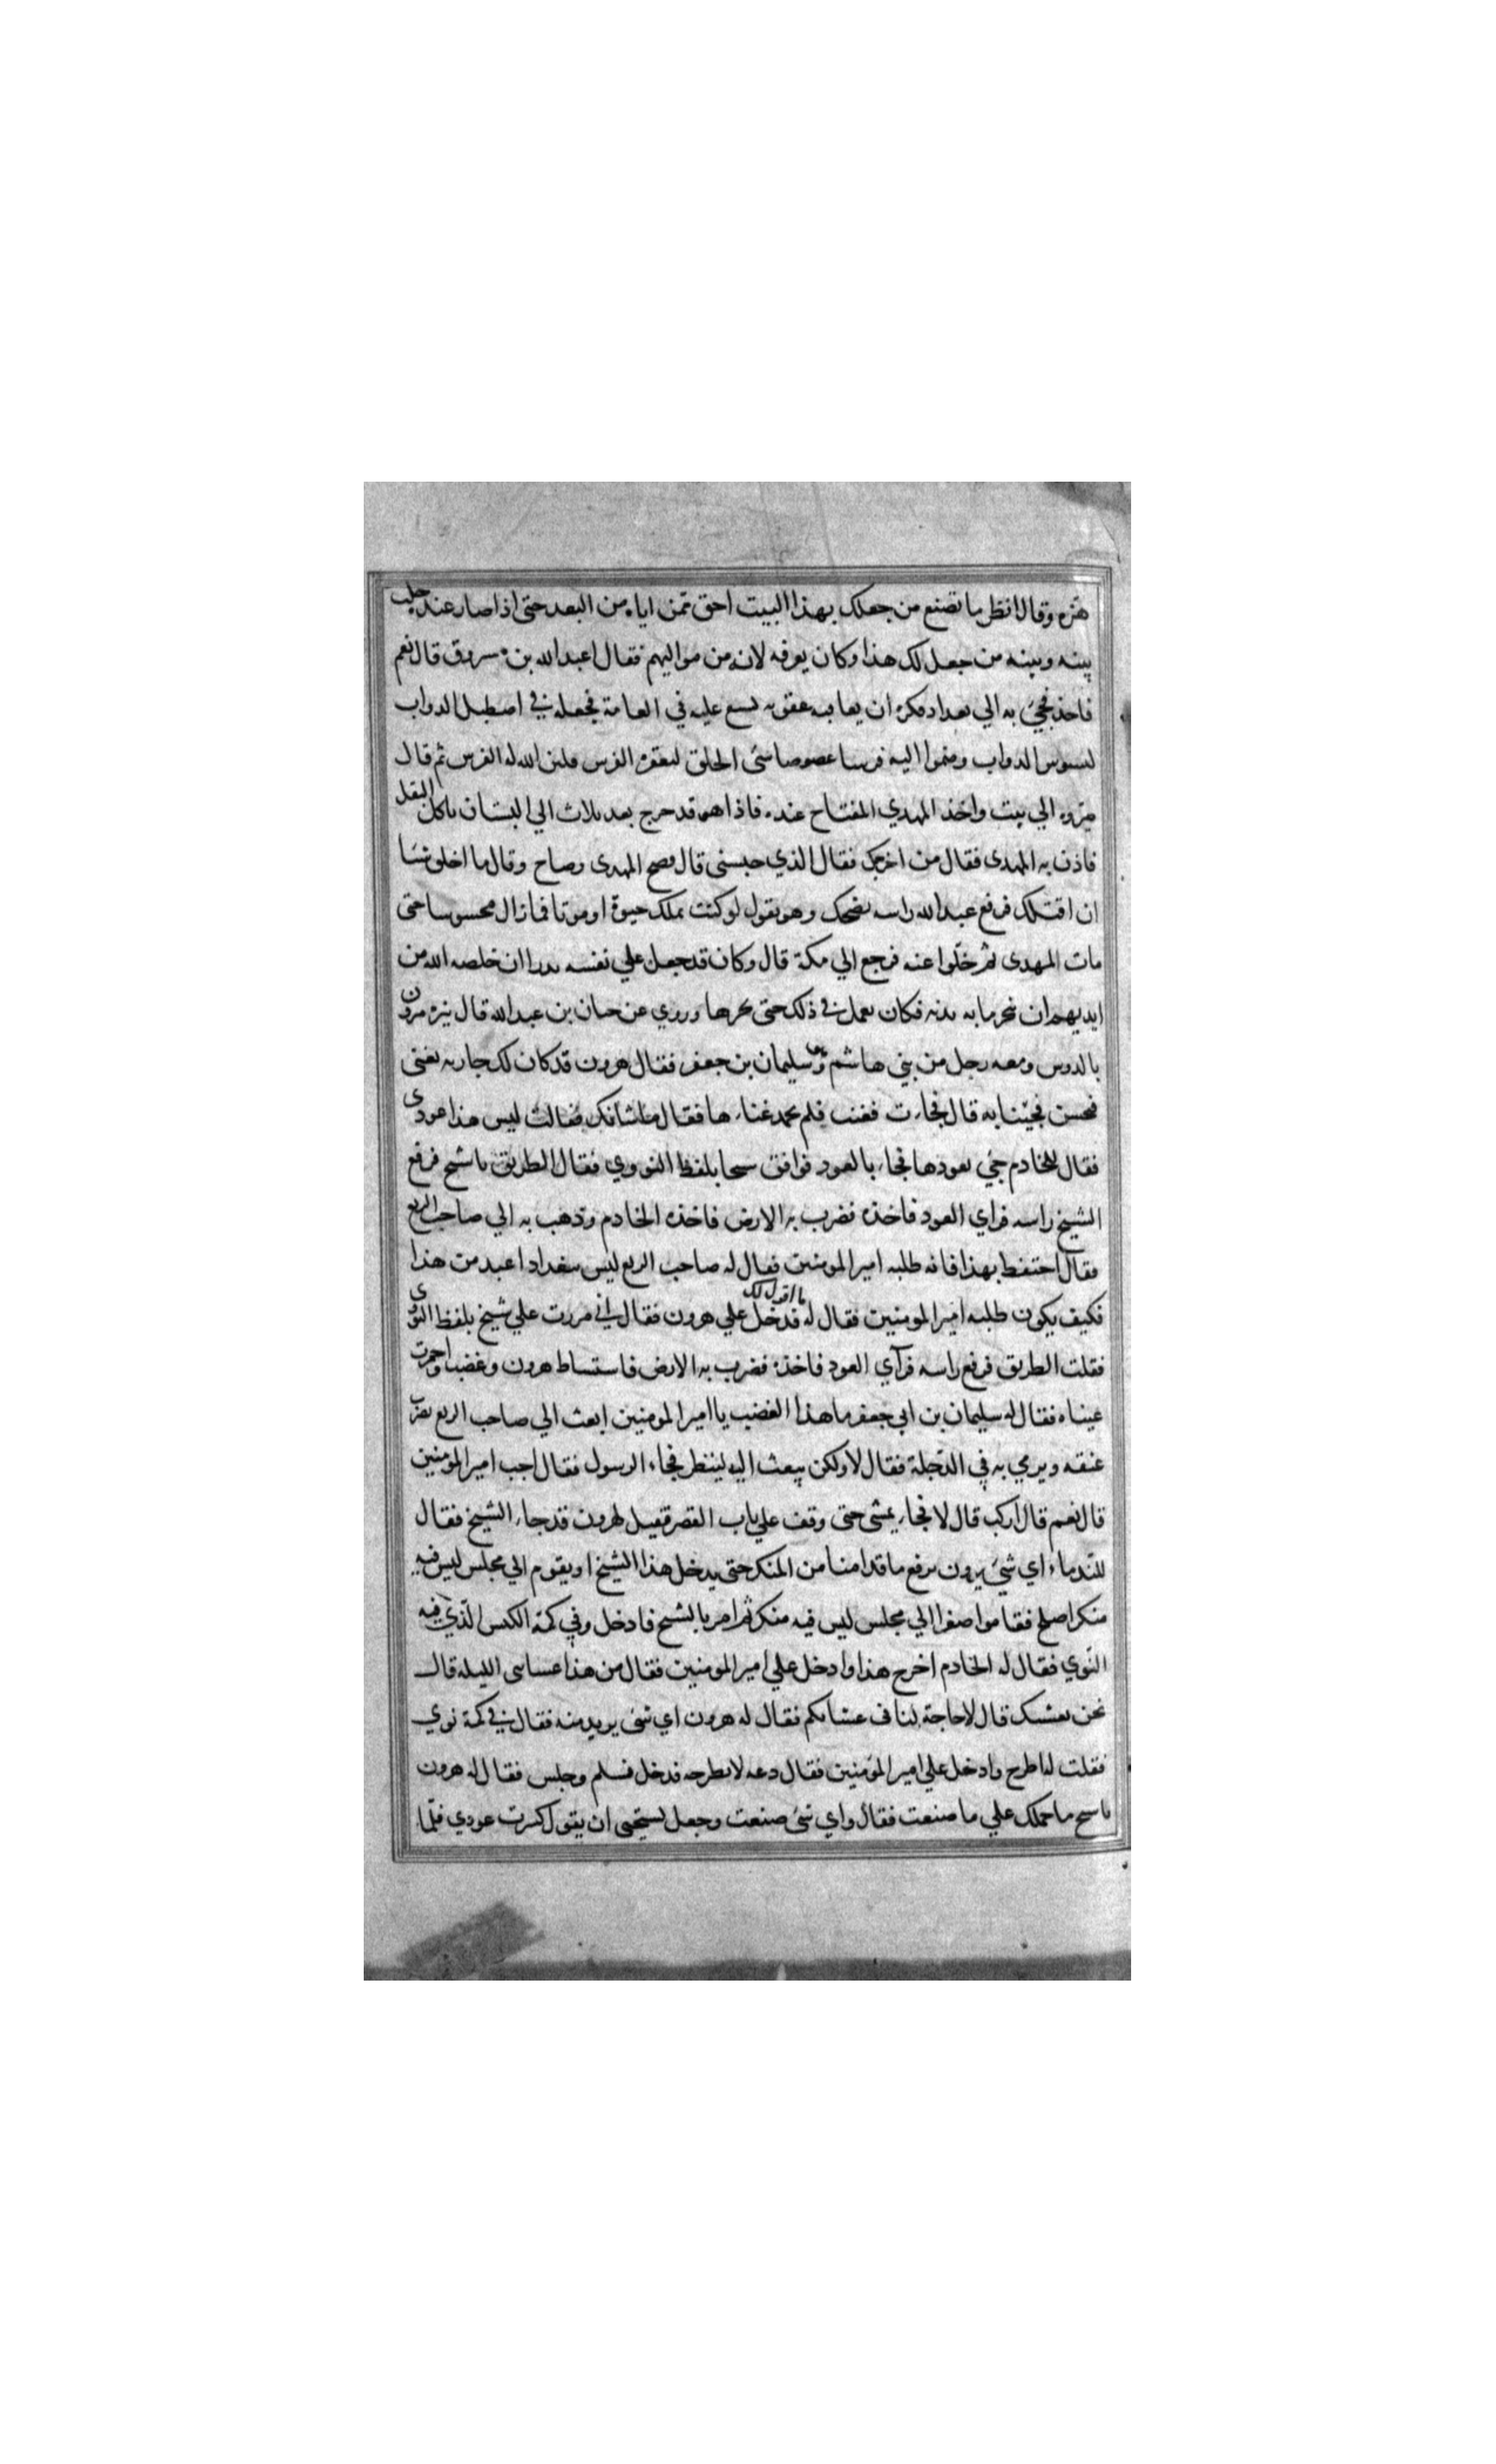 هزه وقال انظر ما تصنع من جعلك بهذا البيت احق ممن اياه من البعد حتى اذا صار عنده حلت
بينه وبينه من جعل لك هذا وكان يعرفه لانه من مواليهم فقال اعبد الله بن مرزوق قال نعم
فاخذ فجيئ به الي بغداد فكره ان يعاقبه عقوبه يسع عليه في العامة فجعله في اصطبل الدواب
ليسوس الدواب وضموا اليه فرسا عضوضا سئ الخلق ليعقره الفرس فلين الله له الفرس ثم قال
صيروه الي بيت واخذ المهدي المفتاح عنده فاذا هو قد خرج بعد ثلاث الي البستان ياكل البقل
فاذن به المهدي فقال من اخرجك فقال الذي حبسني قال فصح المهدي وصاح وقال ما
ان اقتلك فرفع عبد الله راسه يضحك وهو يقول لو كنت تملك حيوة او موتا فما زال محبوسا حتى
مات المهدي ثم خلوا عنه فرجع الي مكة قال وكان قد جعل علي نفسه نذرا ان خلصه الله من
ايديهم ان ينحر مايه بدنه فكان يعمل في ذلك حتى نحرها وروي عن حنان بن عبد الله قال تنزه هرون
بالدوس ومعه رجل من بني هاشم وهو سليمان بن جعفر فقال هرون قد كان لك جاريه تغني
فتحسن فجيئنا به قال فجاءت فغنت فلم يحمد غناءها فقال ما شانك فقالت ليس هذا عودي
فقال للخادم جئ بعودها فجاء بالعود فوافق شيخا يلفظ النووي فقال الطريق يا شيخ فرفع
الشيخ راسه فراي العود فاخذه فضرب به الارض فاخذه الخادم وذهب به الي صاحب الربع
فقال احتفظ بهذا فانه طلبه امير المومنين فقال له صاحب الربع ليس ببغداد اعبد من هذا
فكيف يكون طلبه امير المومنين فقال له ما اقول لك فدخل علي هرون فقال اني مررت علي شيخ يلفظ النوي
فقلت الطريق فرفع راسه فرآي العود فاخذه فضرب به الارض فاستساط هرون وغضب واحمرت
عيناه فقال له سليمان بن ابي جعفر ما هذا الغضب يا امير المومنين ابعث الي صاحب الربع يضرب
عنقه ويرمي به في الدجلة فقال لا ولكن يبعث اليه لينظر فجاء الرسول فقال اجب امير المؤمنين
قال نعم قال اركب قال لا فجاء يمشي حتى وقف علي باب القصر فقيل لهرون قد جاء الشيخ فقال
للندماء اي شئ يرون نرفع ما قدامنا من المنكر حتى يدخل هذا الشيخ او يقوم الي مجلس ليس فيه
منكر اصلح فقاموا الي مجلس ليس فيه منكر ثم امر بالشيخ فادخل وفي كمه الكيس الذي فيه
النوي فقال له الخادم اخرج هذا وادخل علي امير المومنين فقال من هذا عشاي الليله قال
نحن نعشيك قال لا حاجة لنا في عشائكم فقال له هرون اي شئ يريد منه فقال في كمه نوي
فقلت له اطرح وادخل علي امير المؤمنين فقال دعه لا يطرحه فدخل فسلم وجلس فقال له هرون
يا شيخ ما حملك علي ما صنعت فقال واي شئ صنعت وجعل يستحيي ان يقول كسرت عودي فلما